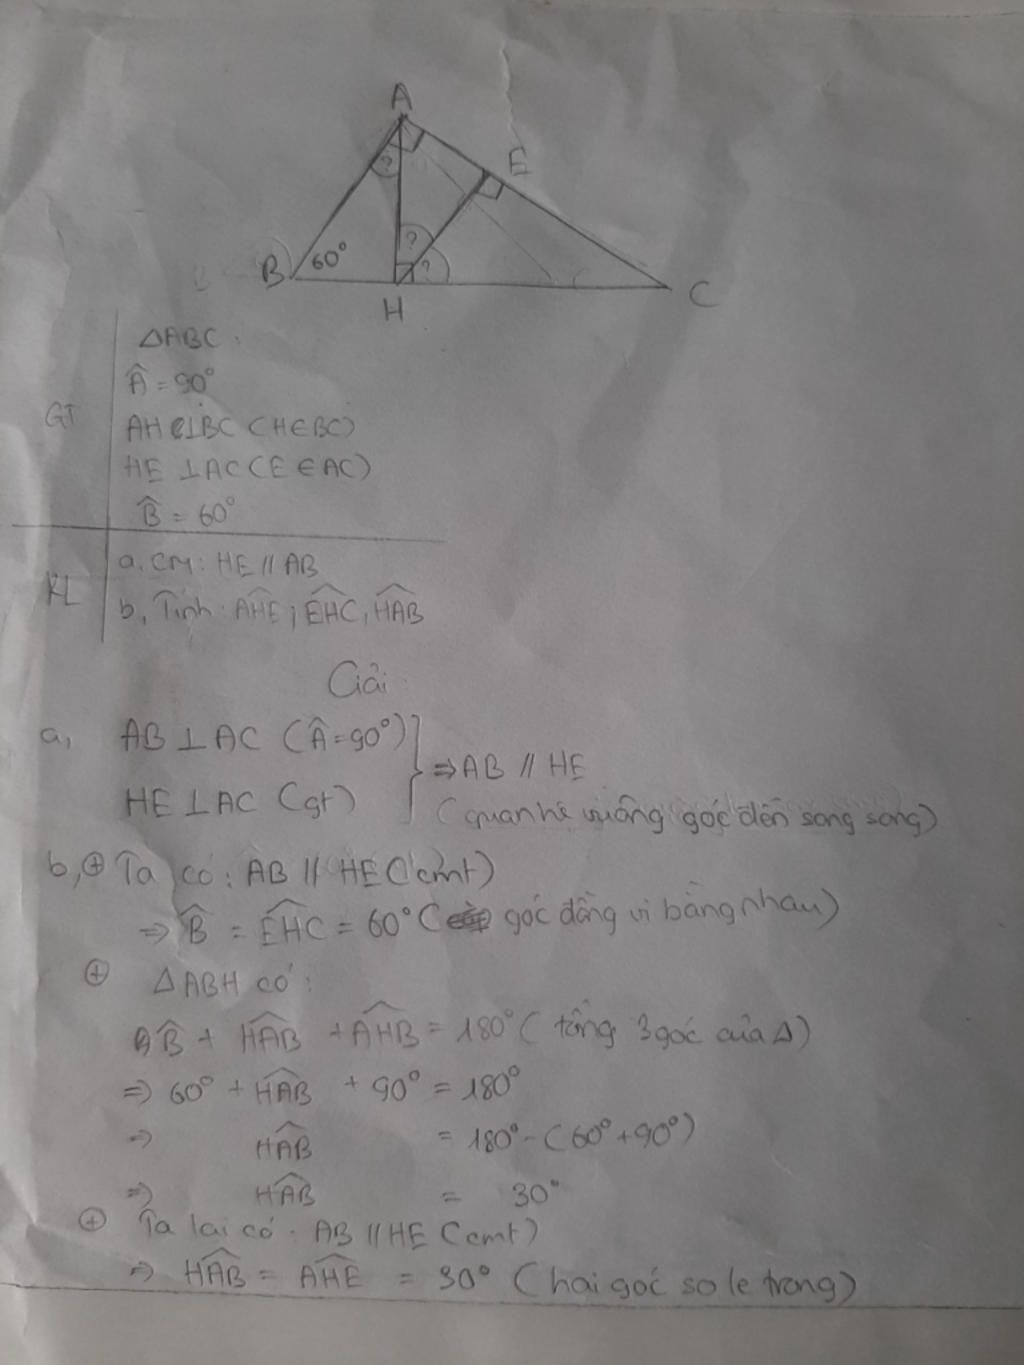 A
E
?
?
?
B
60°
H
C
ΔABC:
Â = 90°
GT
AH ⊥BC (H∈BC)
HE ⊥AC (E ∈ AC)
B̂ = 60°
KL
a, CM: HE // AB
b, Tính: AHE; EHC, HAB
Giải
a, AB ⊥ AC (Â = 90°)
HE ⊥ AC (gt)
⇒ AB // HE
(quan hệ vuông góc đến song song)
b, ⊕ Ta có: AB // HE (cmt)
⇒ B̂ = EHC = 60° ( góc đồng vị bằng nhau)
⊕ ΔABH có:
B̂ + HAB + AHB = 180° ( tổng 3 góc của Δ)
⇒ 60° + HAB + 90° = 180°
⇒ HAB = 180° - (60° + 90°)
⇒ HAB = 30°
⊕ Ta lại có: AB // HE (cmt)
⇒ HAB = AHE = 30° (hai góc so le trong)